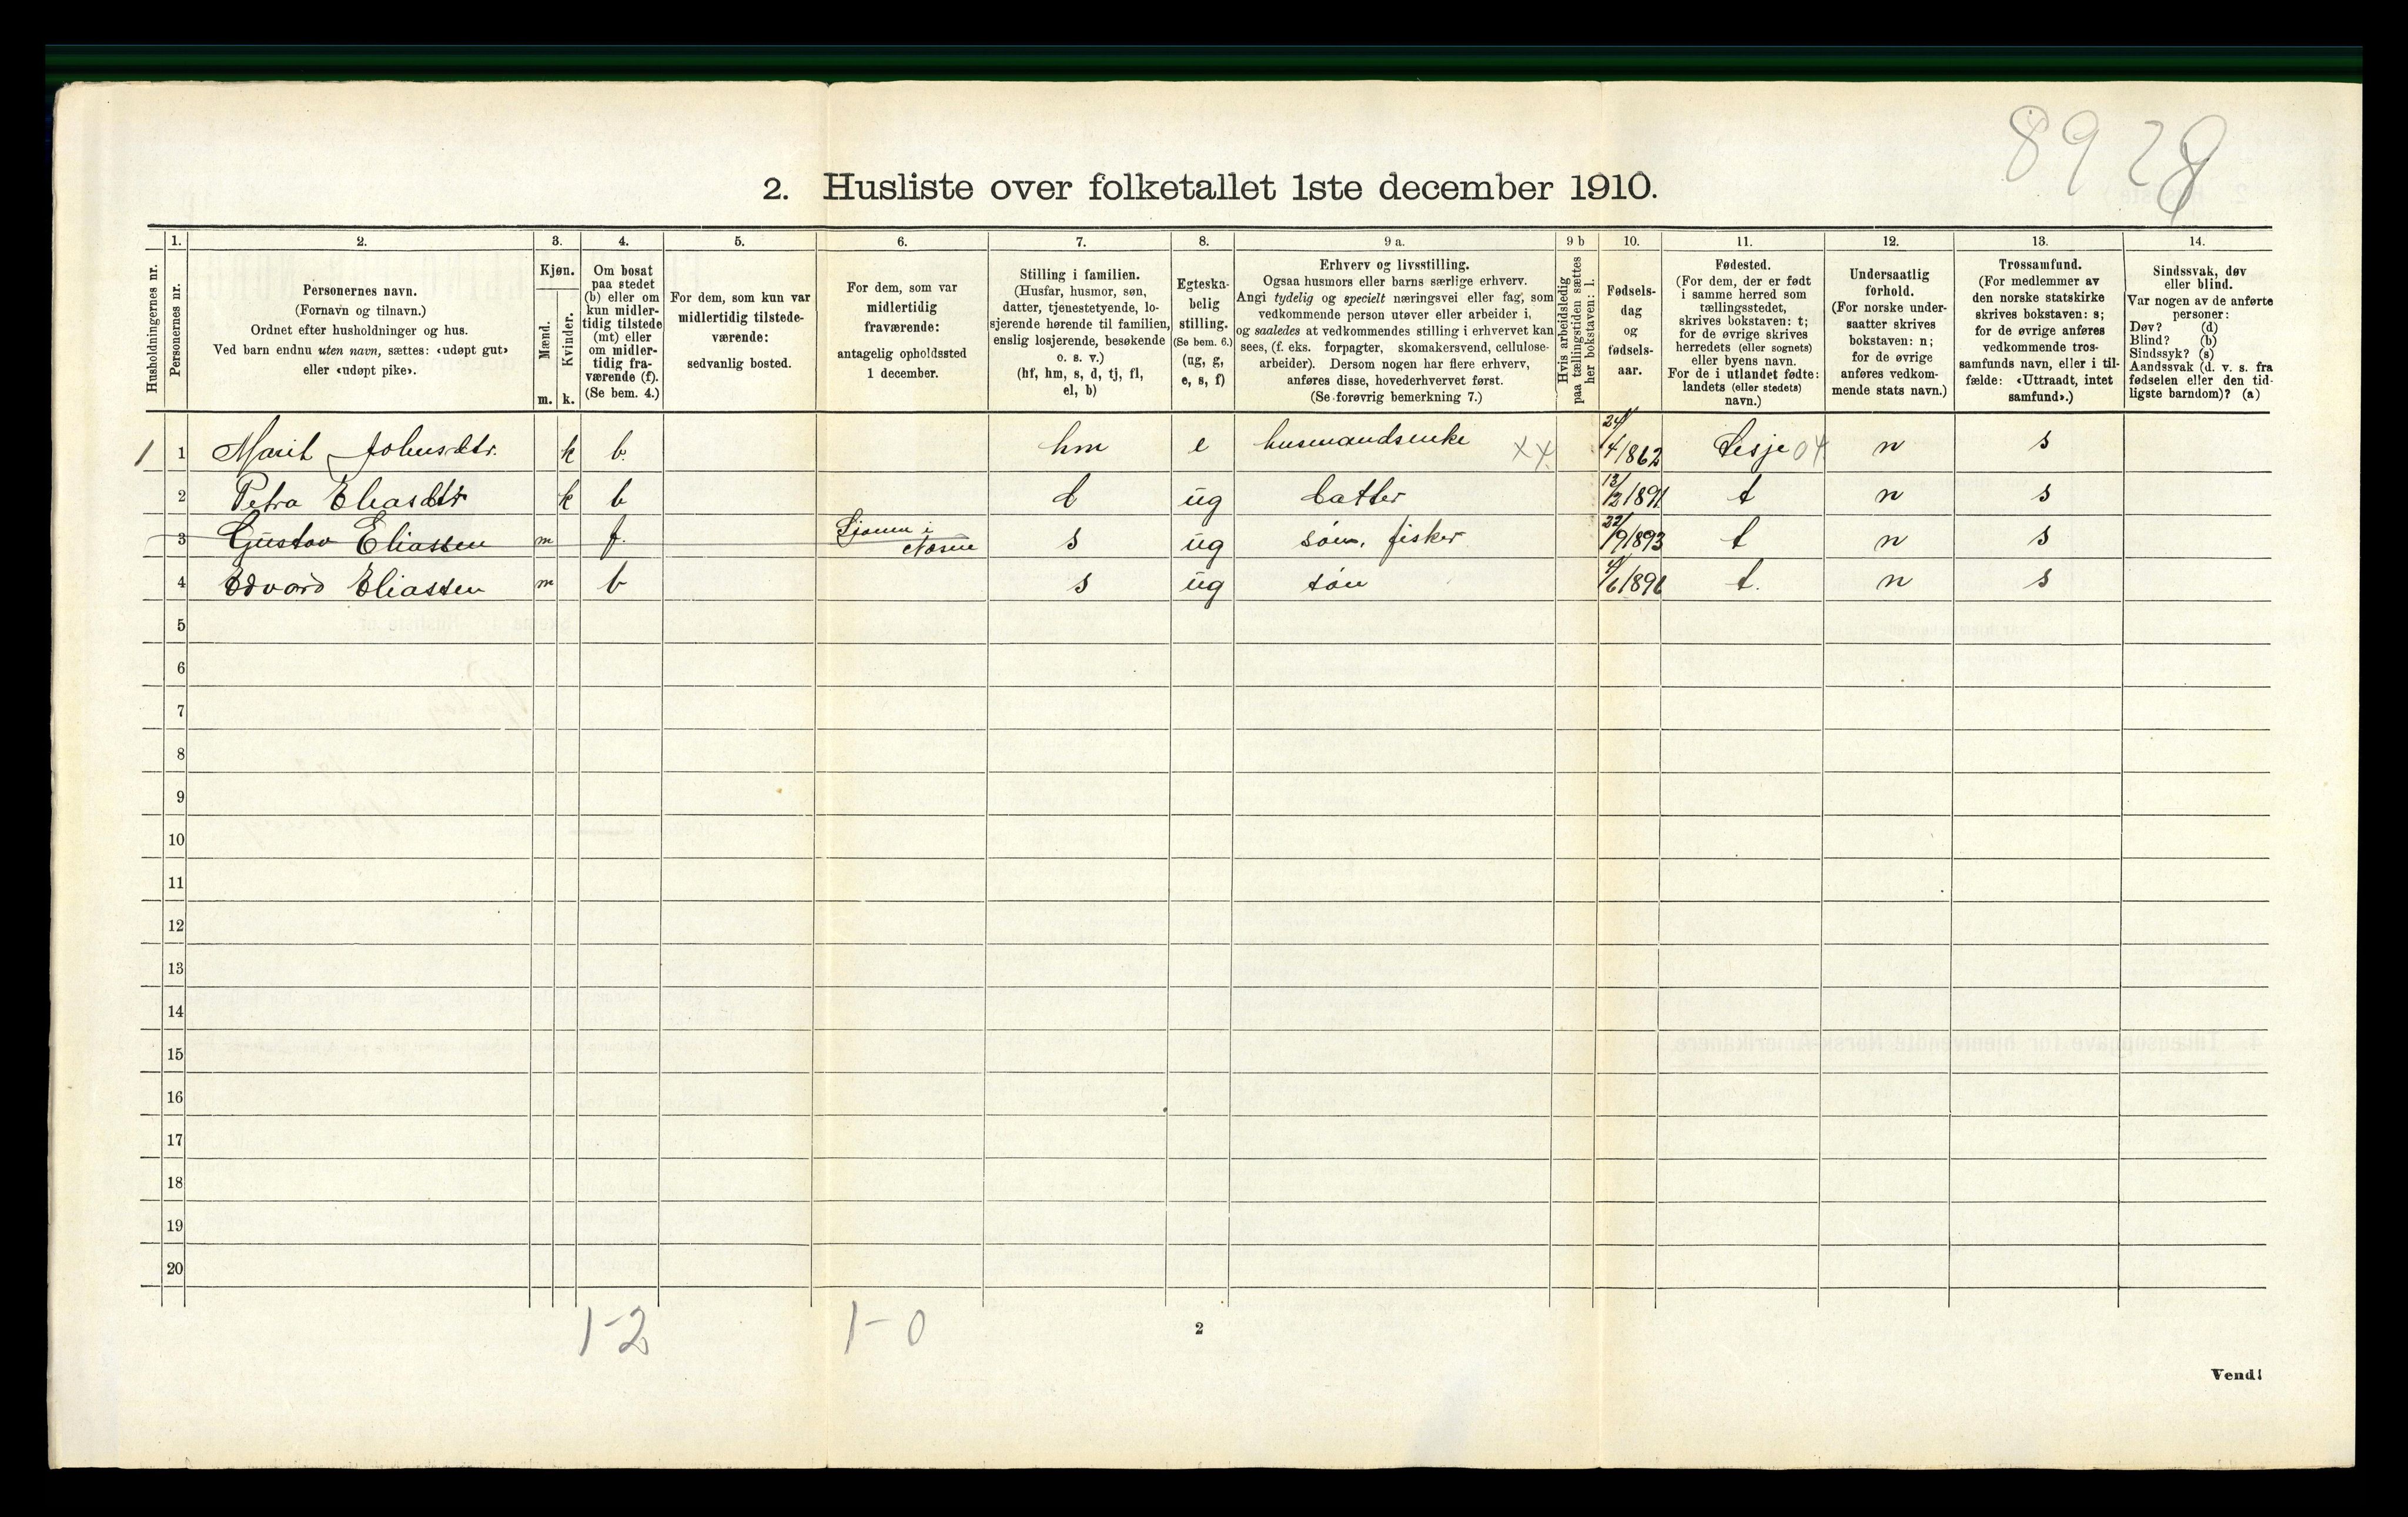 8928
2. Husliste over folketallet 1ste december 1910.
1. 2. 3. 4. 5. 6. 7. 8. 9 a. 9 b 10. 11. 12. 13. 14.
Husholdningernes nr.
Personernes nr.
Personernes navn.
(Fornavn og tilnavn.)
Ordnet efter husholdninger og hus.
Ved barn endnu uten navn, sættes: «udøpt gut»
eller «udøpt pike».
Kjøn.
Mænd.
Kvinder.
m. k.
Om bosat
paa stedet
(b) eller om
kun midler-
tidig tilstede
(mt) eller
om midler-
tidig fra-
værende (f).
(Se bem. 4.)
For dem, som kun var
midlertidig tilstede-
værende:
sedvanlig bosted.
For dem, som var
midlertidig
fraværende:
antagelig opholdssted
1 december.
Stilling i familien.
(Husfar, husmor, søn,
datter, tjenestetyende, lo-
sjerende hørende til familien,
enslig losjerende, besøkende
o. s. v.)
(hf, hm, s, d, tj, fl,
el, b)
Egteska-
belig
stilling.
(Se bem. 6.)
(ug, g,
e, s, f)
Erhverv og livsstilling.
Ogsaa husmors eller barns særlige erhverv.
Angi tydelig og specielt næringsvei eller fag, som
vedkommende person utøver eller arbeider i,
og saaledes at vedkommendes stilling i erhvervet kan
sees, (f. eks. forpagter, skomakersvend, cellulose-
arbeider). Dersom nogen har flere erhverv,
anføres disse, hovederhvervet først.
(Se forøvrig bemerkning 7.)
Hvis arbeidsledig
paa tællingstiden sættes
her bokstaven: l.
Fødsels-
dag
og
fødsels-
aar.
Fødested.
(For dem, der er født
i samme herred som
tællingsstedet,
skrives bokstaven: t;
for de øvrige skrives
herredets (eller sognets)
eller byens navn.
For de i utlandet fødte:
landets (eller stedets)
navn.)
Undersaatlig
forhold.
(For norske under-
saatter skrives
bokstaven: n;
for de øvrige
anføres vedkom-
mende stats navn.)
Trossamfund.
(For medlemmer av
den norske statskirke
skrives bokstaven: s;
for de øvrige anføres
vedkommende tros-
samfunds navn, eller i til-
fælde: «Uttraadt, intet
samfund».)
Sindssvak, døv
eller blind.
Var nogen av de anførte
personer:
Døv? (d)
Blind? (b)
Sindssyk? (s)
Aandssvak (d. v. s. fra
fødselen eller den tid-
ligste barndom)? (a)
1 1 Marit Johnsdtr. k b. hm e husmandsenke XX. 24/4 1862 Lesje 04 n s
2 Petra Eliasdtr k b d ug datter 13/12 1891 t n s
3 Gustav Eliassen m f. i Næsne s ug søn, fisker 22/9 1893 t n s
4 Edvard Eliassen m b s ug søn 4/6 1896 t. n s
5
6
7
8
9
10
11
12
13
14
15
16
17
18
19
20
1-2 1-0
2
Vend!